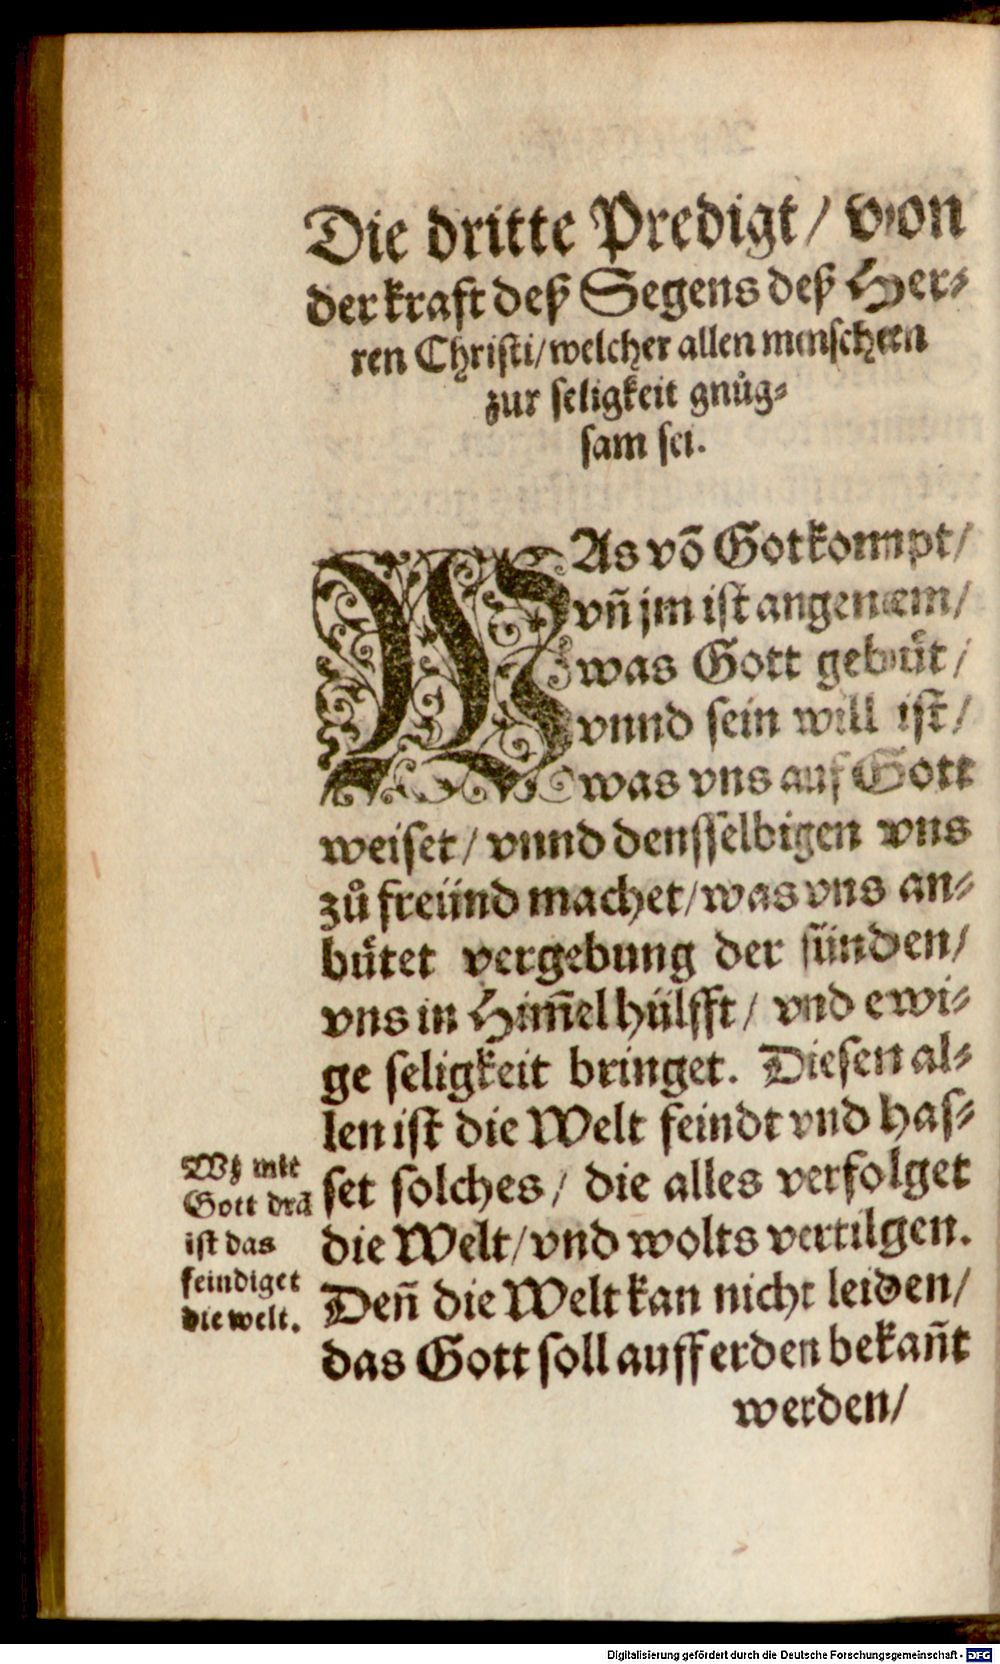 Die dritte Predigt/ von
der kraft deß Segens deß Her⸗
ren Christi/welcher allen menschen
zur seligkeit gnůg⸗
sam sei.
WAs võ Got kompt/
vñ jm ist angenem/
was Gott gebüt/
vnnd sein will ist/
was vns auf Gott
weiset/ vnnd densselbigen vns
zů freünd machet/was vns an⸗
bütet vergebung der sünden/
vns in Him̃el hülfft/ vnd ewi⸗
ge seligkeit bringet. Diesen al⸗
len ist die Welt feindt vnd has⸗
set solches/ die alles verfolget
die Welt/vnd wolts vertilgen.
Deñ die Welt kan nicht leiden/
das Gott soll auff erden bekañt
werden/
Wz mit
Gott drã
ist das
feindiget
die welt.
Digitalisierung gefördert durch die Deutsche Forschungsgemeinschaft - DFG